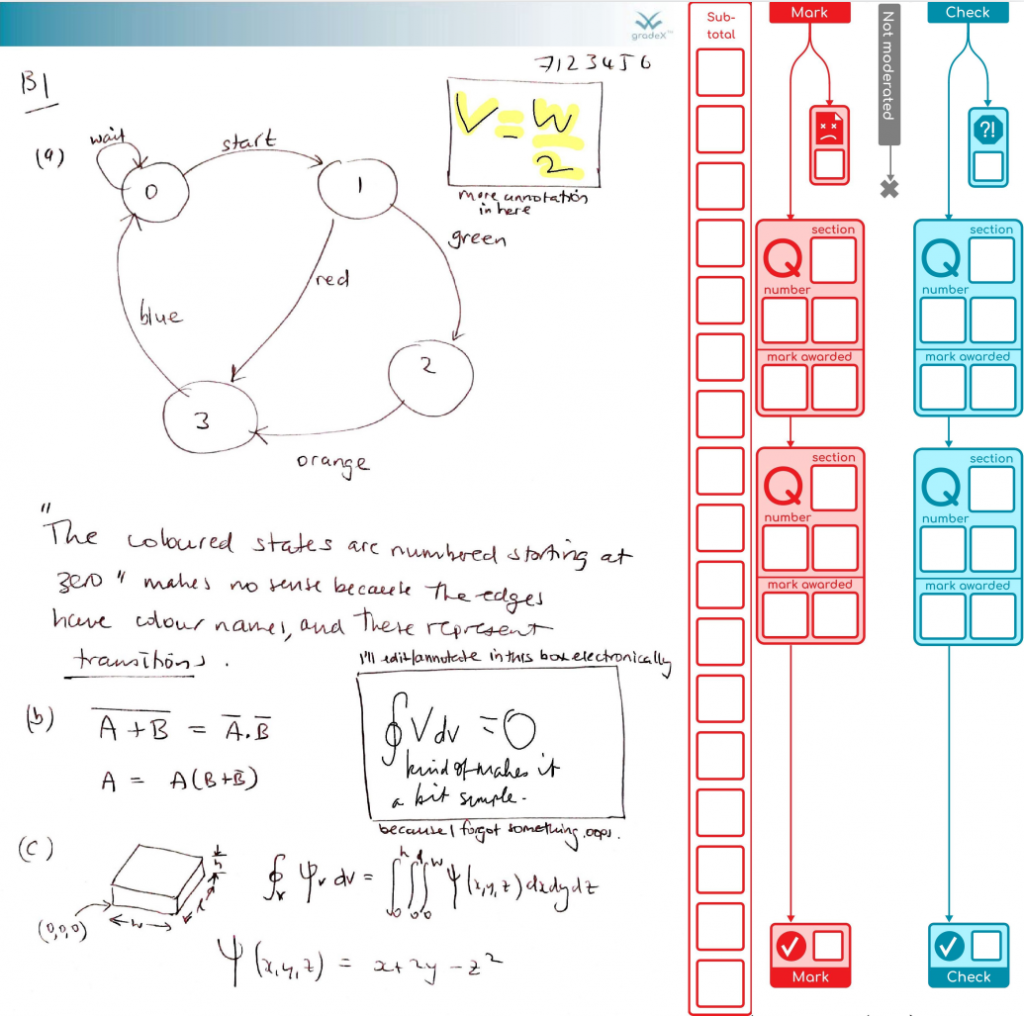 gradeX™
7123456
B1
(a)
wait
start
0
1
V = W
2
more annotation
in here
green
red
blue
2
3
orange
"
The coloured states are numbered starting at
zero" makes no sense because the edges
have colour names, and these represent
transitions.
I'll edit/annotate in this box electronically
(b)
A + B = A̅.B̅
A = A(B+B̅)
∮V dv = 0
kind of makes it
a bit simple.
because I forgot something, oops.
(c)
h
l
w
(0,0,0)
∮v ψv dv = ∫∫∫ ψ(x,y,z) dxdydz
h l w
0 0 0
ψ(x,y,z) = x+2y-z²
Sub-
total
Mark
Not moderated
Check
?!
section
Q
number
mark awarded
section
Q
number
mark awarded
section
Q
number
mark awarded
section
Q
number
mark awarded
Mark
Check